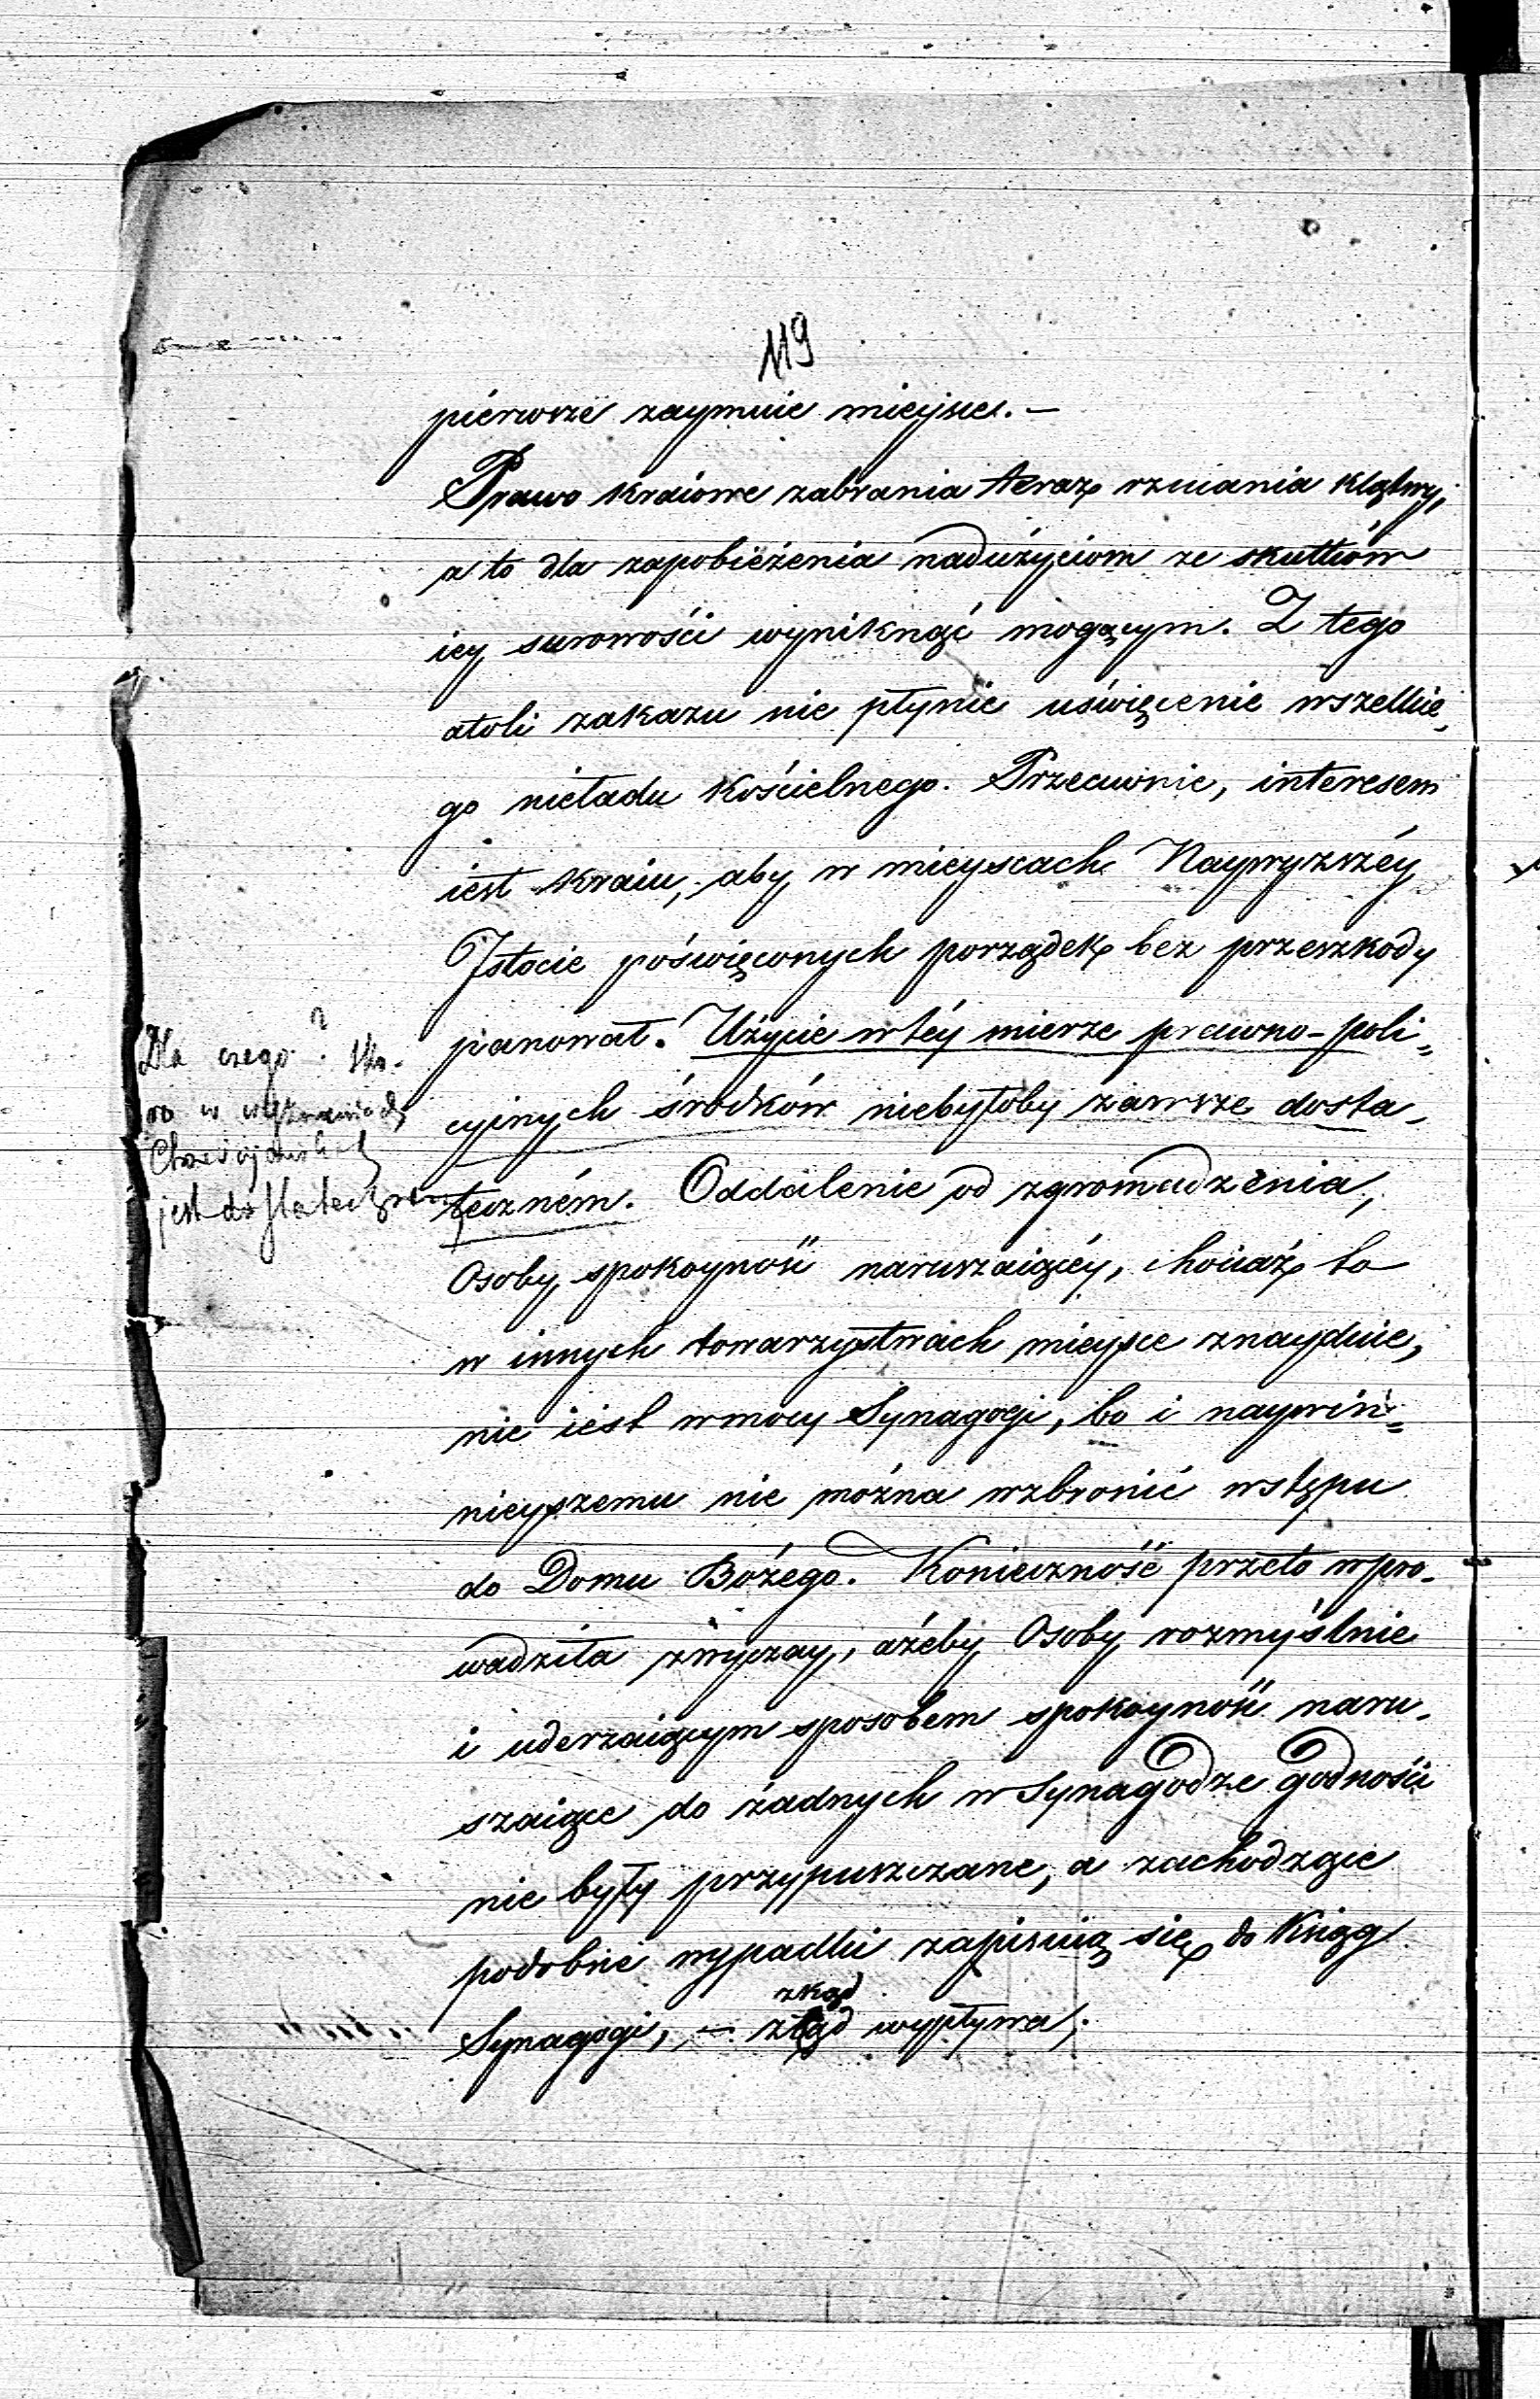 119
pierwsze zaymuie mieysce. —
Prawo kraiowe zabrania teraz rzucania klątwy,
a to dla zapobieżenia nadużyciom ze skutków
iey surowości wyniknąć mogącym. Z tego
atoli zakazu nie płynie uświęcenie wszelkie„
go nieładu kościelnego. Przeciwnie, interesem
iest kraiu, aby w mieyscach Naywyższéy
Istocie poświęconych porządek bez przeszkody
panował. Użycie w téy mierze prawno-poli„
cyinych środków niebyłoby zawsze dosta„
teczném. Oddalenie od zgromadzenia,
Osoby spokoyność naruszaiącéy, chociaż to
w innych towarzystwach mieysce znayduie,
nie iest w mocy Synagogi, bo i naywin„
nieyszemu nie można wzbronić wstępu
do Domu Bożego. Konieczność przeto wpro„
wadziła zwyczay, ażeby Osoby rozmyślnie
i uderzaiącym sposobem spokoyność naru„
szaiące do żadnych w Synagodze godności
nie były przypuszczane, a zachodzące
podobne wypadki zapisuią się do Ksiąg
zkąd
Synagogi, — wypływa,
Dla czego? sko-
ro w wyznaniach
Chrześcijańskich
jest dostateczném